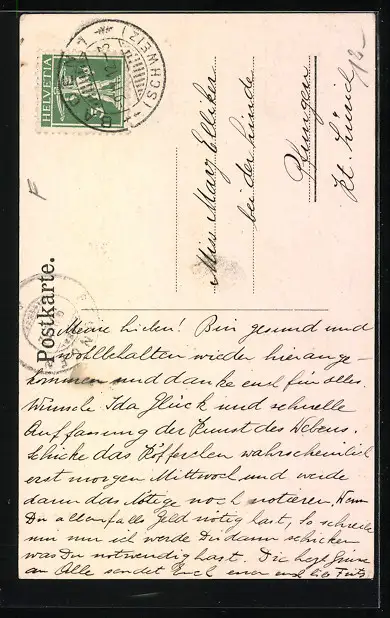 HELVETIA
BADEN
(SCHWEIZ)
Postkarte.
Miss Mary Elliker
bei der Linde
Kt. Zürich
Meine Lieben! Bin gesund und
wohlbehalten wieder hier ange-
kommen und danke euch für alles.
Wünsche Ida Glück und schnelle
Auffassung der Kunst des Webens.
Schicke das Köfferchen wahrscheinlich
erst morgen Mittwoch und werde
dann das Nötige noch notieren. Wenn
Du allenfalls Geld nötig hast, so schreibe
mir nur ich werde Dir dann schicken
was Du notwendig hast. Die besten Grüsse
an Alle sendet Euch euer Fritz